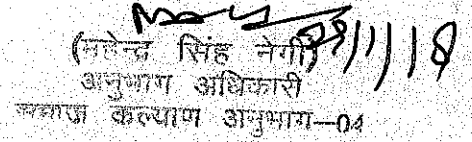 (महेन्द्र सिंह नेगी)
अनुभाग अधिकारी
समाज कल्याण अनुभाग—04